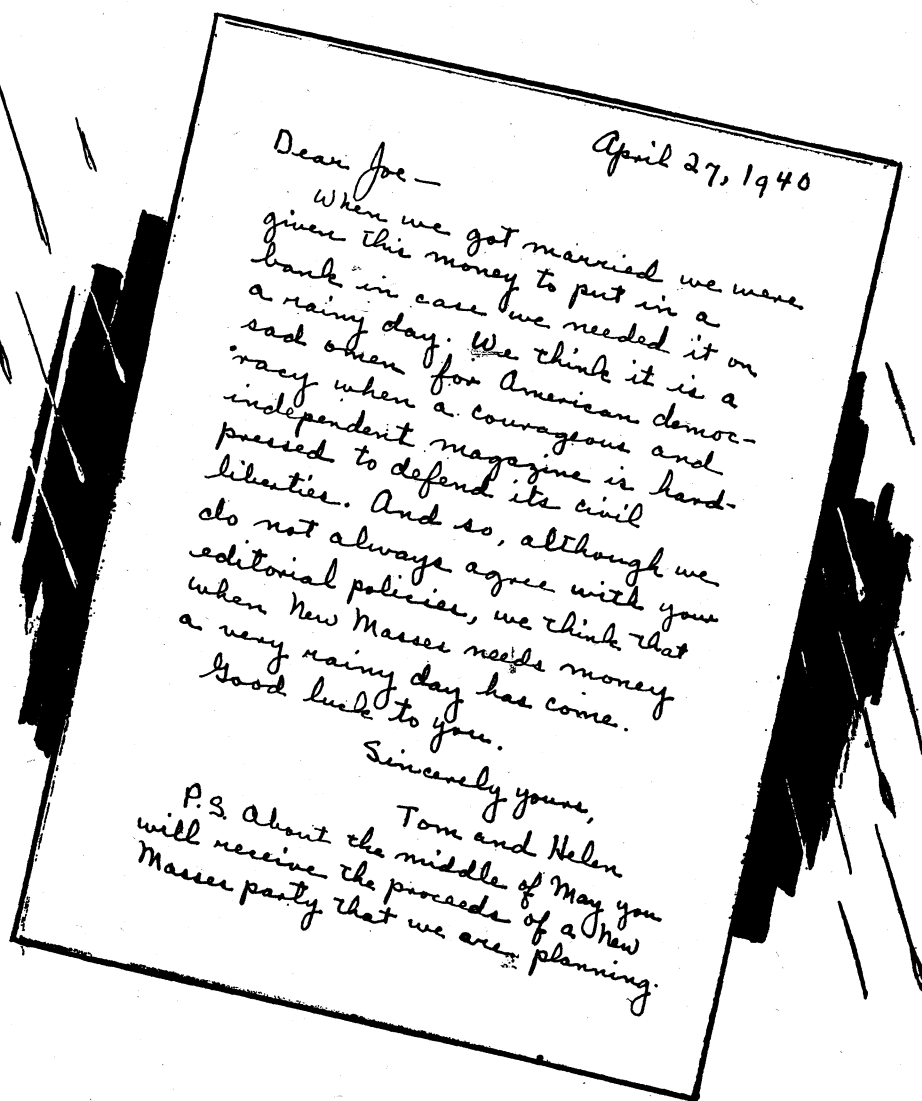 April 27, 1940
Dear Joe —
When we got married we were
given this money to put in a
bank in case we needed it on
a rainy day. We think it is a
sad omen for American democ-
racy when a courageous and
independent magazine is hard-
pressed to defend its civil
liberties. And so, although we
do not always agree with your
editorial policies, we think that
when New Masses needs money
a very rainy day has come.
Good luck to you.
Sincerely yours,
Tom and Helen
P.S. About the middle of May you
will receive the proceeds of a New
Masses party that we are planning.